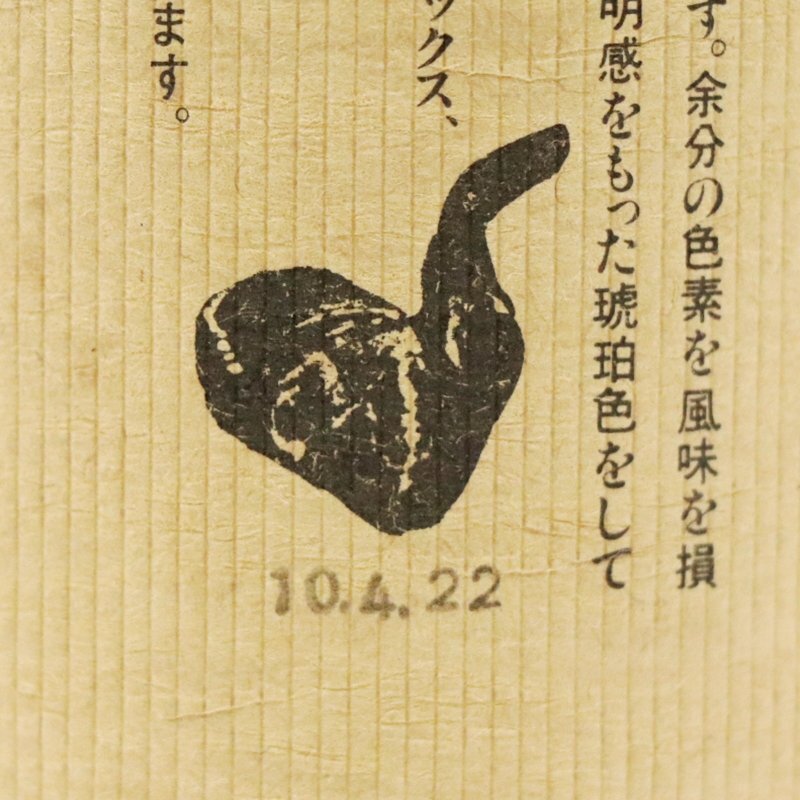 す。余分の色素を風味を損
明感をもった琥珀色をして
ックス、
ます。
10.4.22